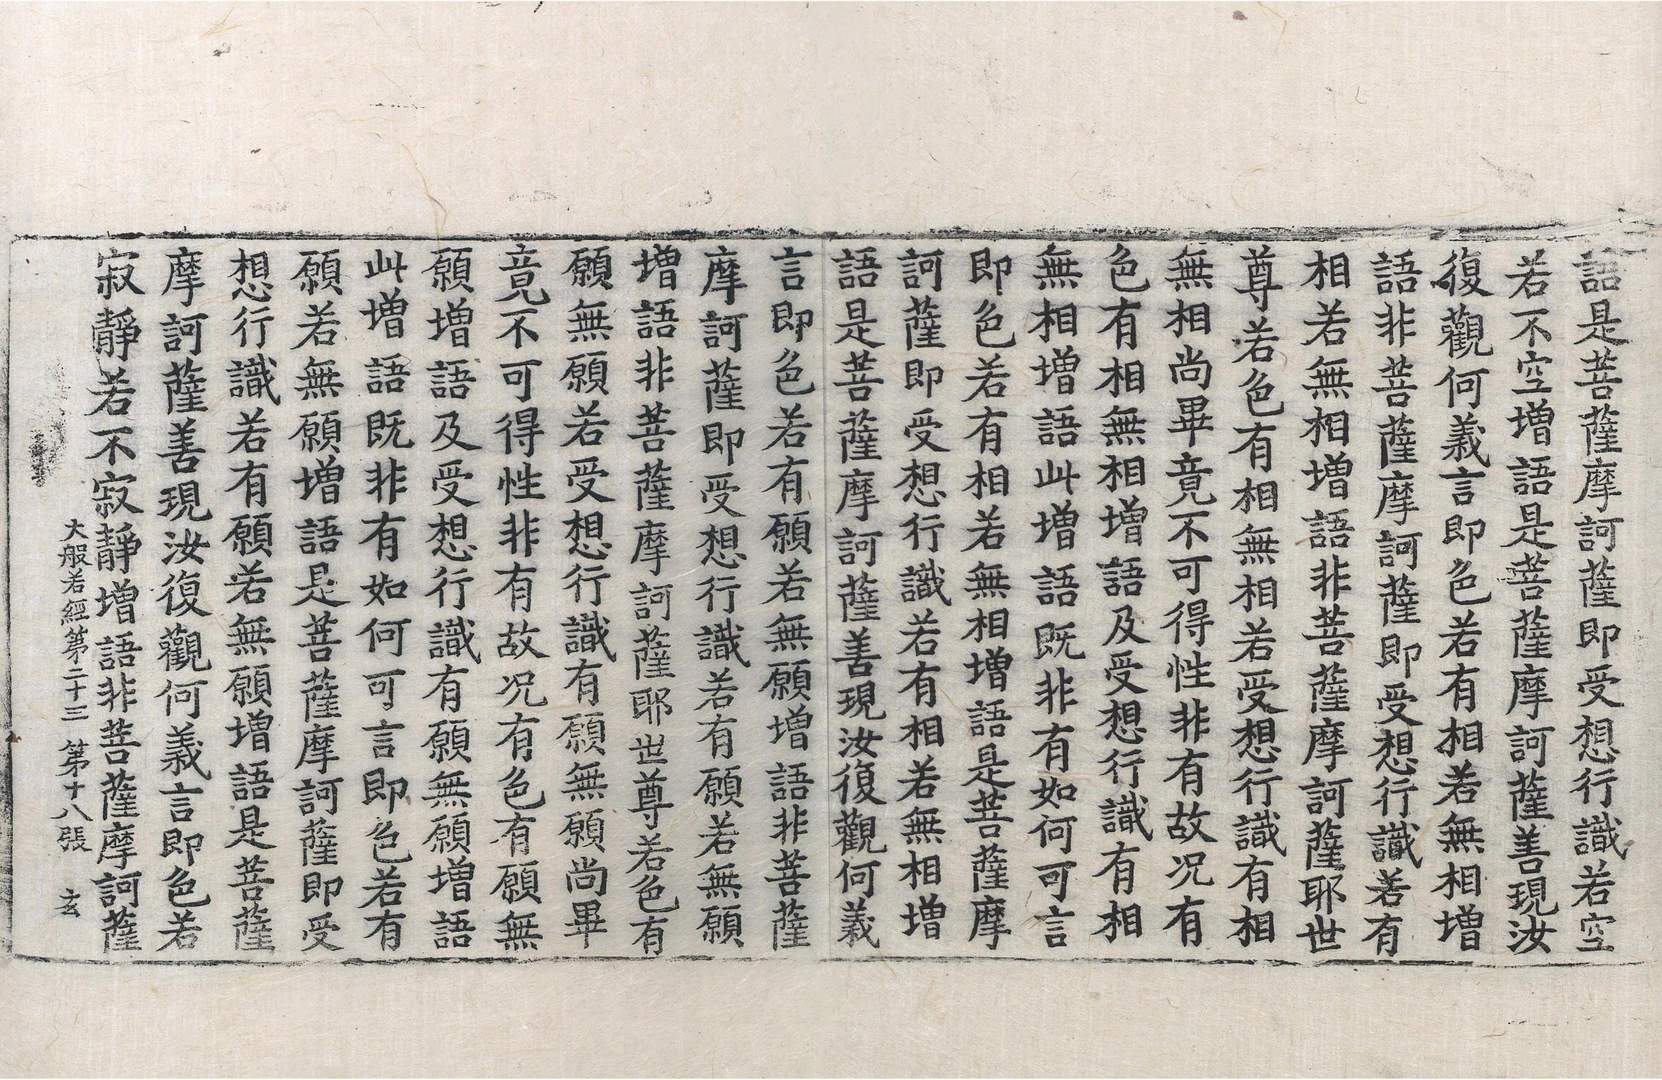 語是菩薩摩訶薩即受想行識若空
若不空增語是菩薩摩訶薩善現汝
復觀何義言即色若有相若無相增
語非菩薩摩訶薩即受想行識若有
相若無相增語非菩薩摩訶薩耶世
尊若色有相無相若受想行識有相
無相尚畢竟不可得性非有故況有
色有相無相增語及受想行識有相
無相增語此增語既非有如何可言
即色若有相若無相增語是菩薩摩
訶薩即受想行識若有相若無相增
語是菩薩摩訶薩善現汝復觀何義
言即色若有願若無願增語非菩薩
摩訶薩即受想行識若有願若無願
增語非菩薩摩訶薩耶世尊若色有
願無願若受想行識有願無願尚畢
竟不可得性非有故況有色有願無
願增語及受想行識有願無願增語
此增語既非有如何可言即色若有
願若無願增語是菩薩摩訶薩即受
想行識若有願若無願增語是菩薩
摩訶薩善現汝復觀何義言即色若
寂靜若不寂靜增語非菩薩摩訶薩
大般若經第二十三 第十八張 玄